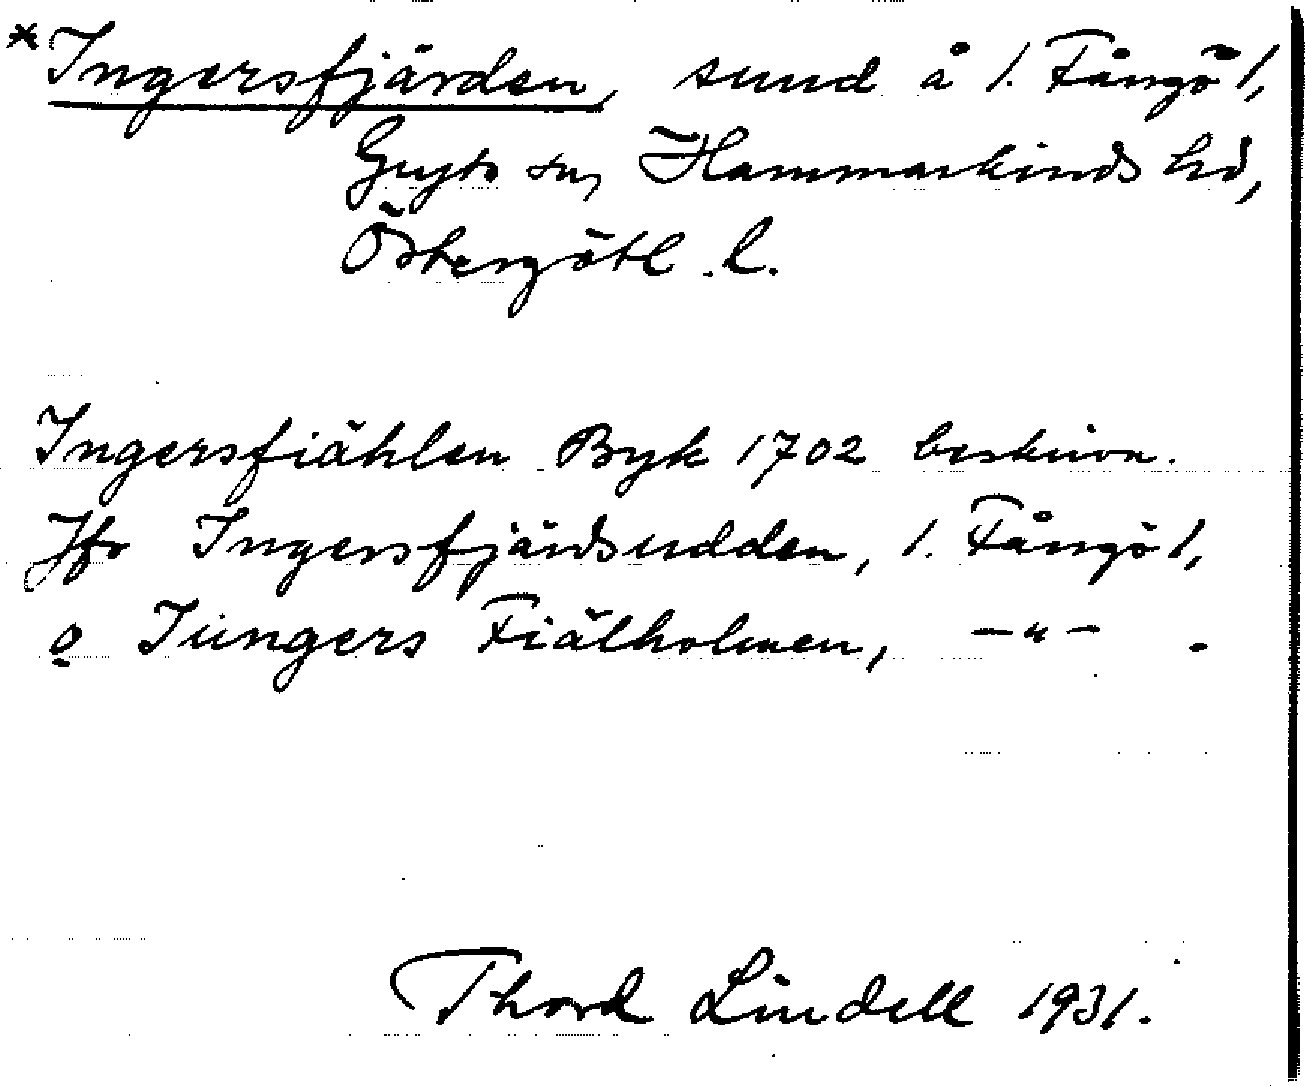 *Ingersfjärden, sund å 1. Fångö 1,
Gryts sn, Hammarkinds hd,
Östergötl. l.
Ingersfiählen Byk 1702 beskrivn.
Jfr Ingersfjärdsudden, 1. Fångö 1,
o Jüngers Fiälholmen, –"– .
Thord Lindell 1931.